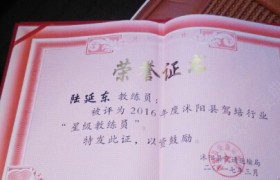 荣誉证书
陆延东 教练员：
被评为2016年度沭阳县驾培行业
“星级教练员”。
特发此证，以资鼓励。
沭阳县交通运输局
二〇一七年三月